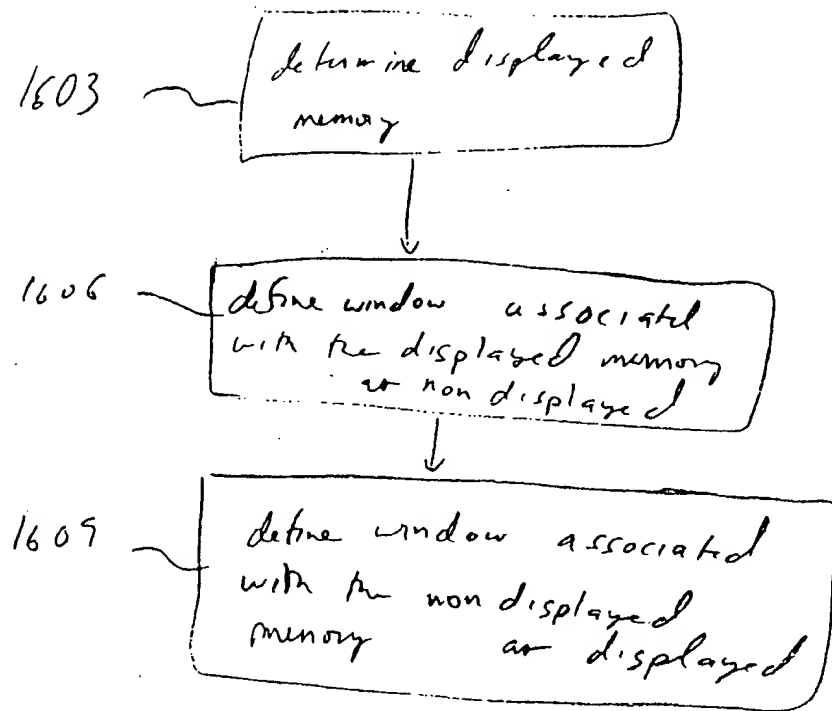 1603
determine displayed
memory
1606
define window associated
with the displayed memory
as non displayed
1609
define window associated
with the non displayed
memory as displayed